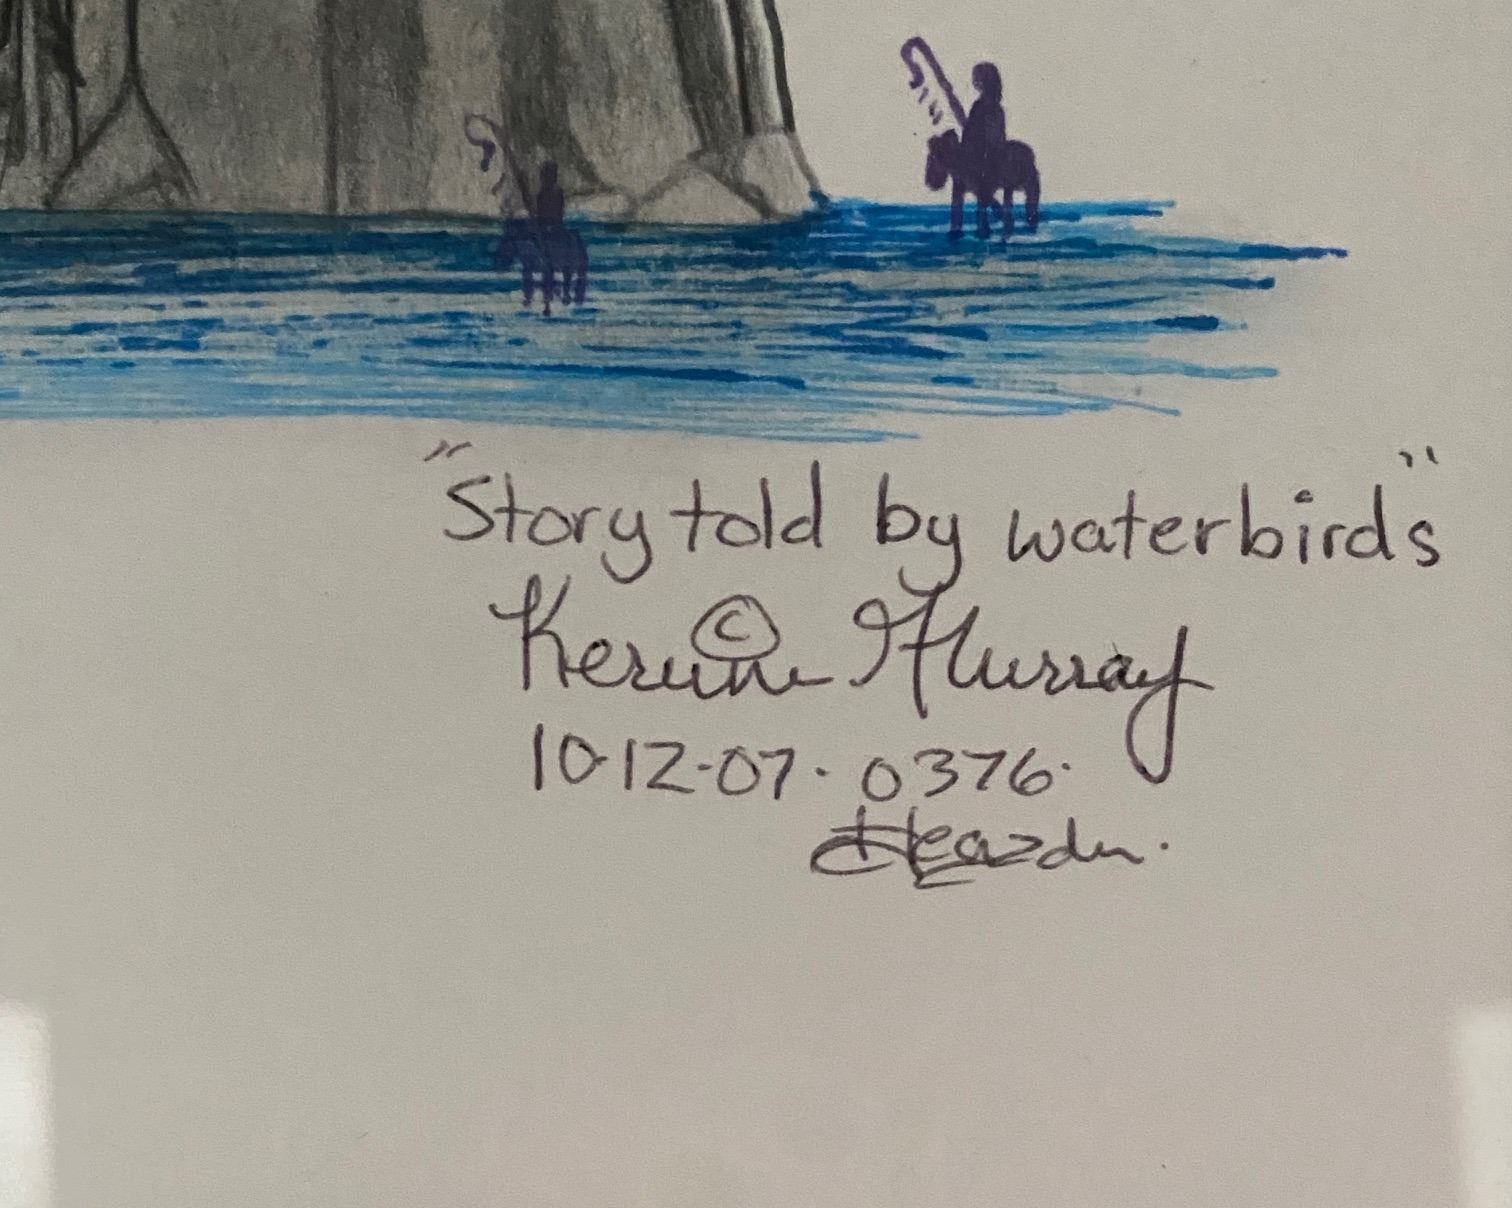 "Story told by waterbirds"
© Murray
10·12·07· 0376·